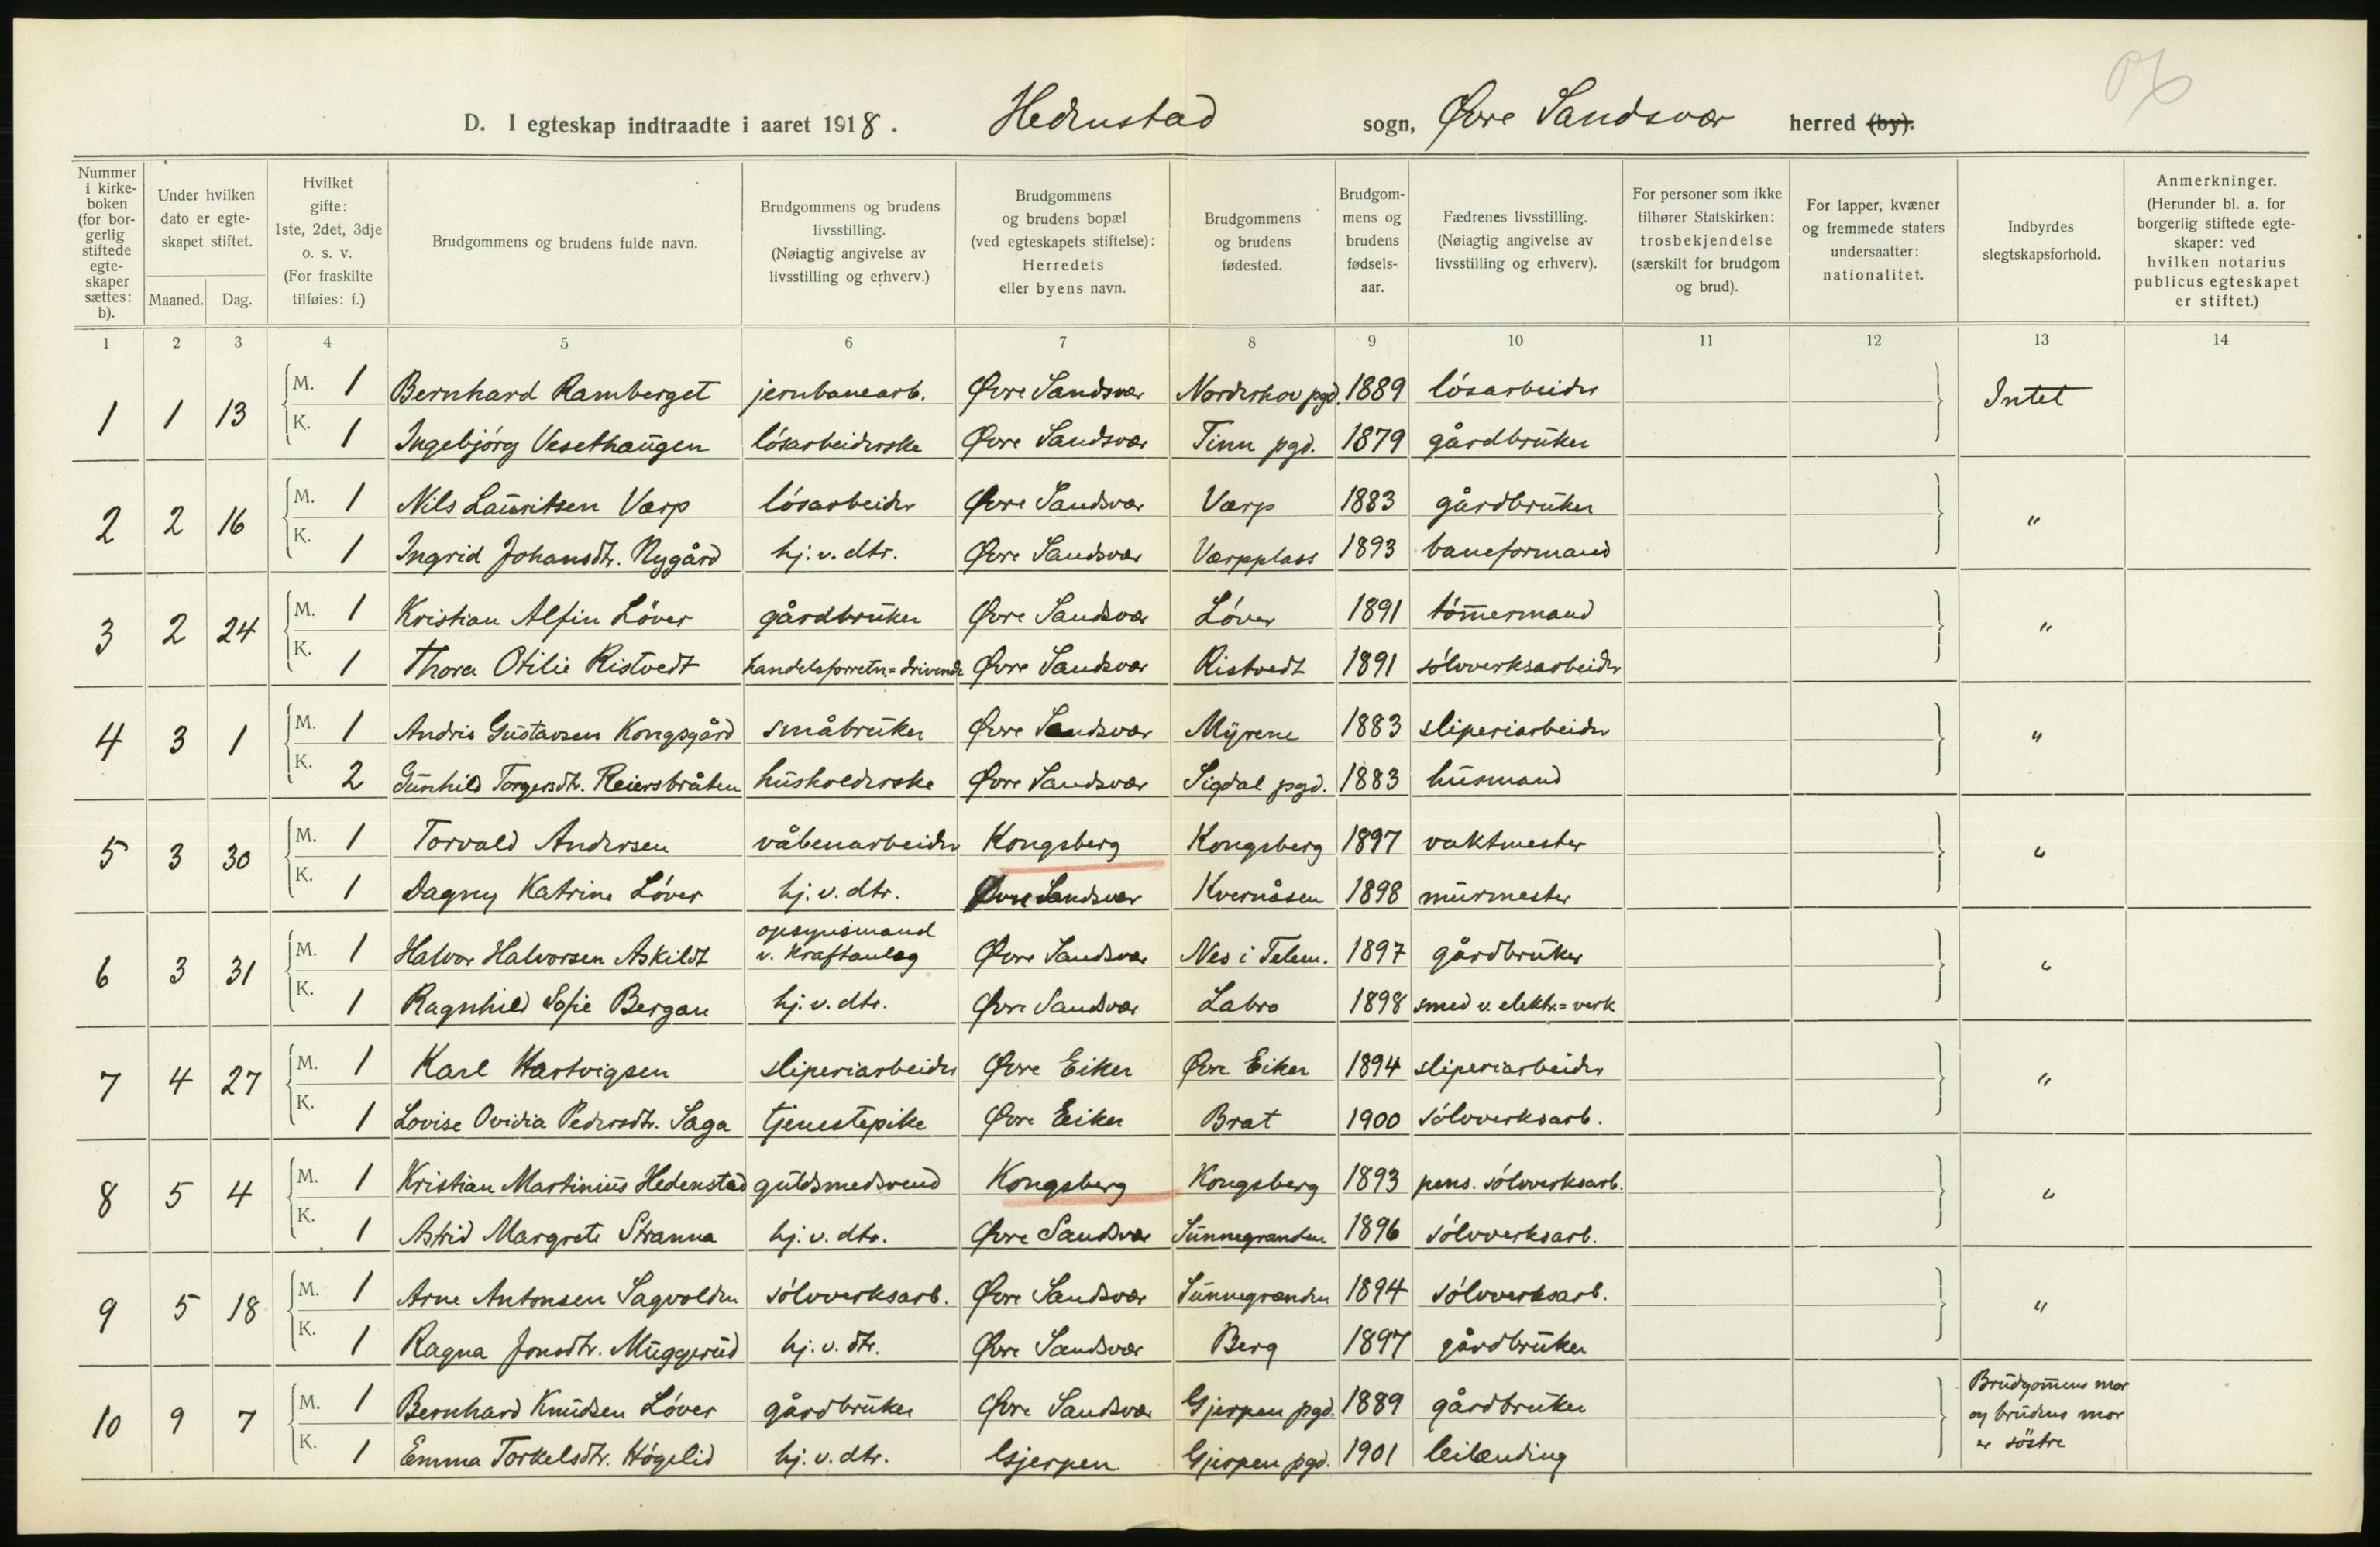 D. I egteskap indtraadte i aaret 1918. Hedenstad sogn, Øvre Sandsvær herred (by).
Nummer i kirkeboken (for borgerlig stiftede egteskaper sættes: b).
Under hvilken dato er egteskapet stiftet.
Maaned. Dag.
Hvilket gifte: 1ste, 2det, 3dje o. s. v. (For fraskilte tilføies: f.)
Brudgommens og brudens fulde navn.
Brudgommens og brudens livsstilling. (Nøiagtig angivelse av livsstilling og erhverv.)
Brudgommens og brudens bopæl (ved egteskapets stiftelse): Herredets eller byens navn.
Brudgommens og brudens fødested.
Brudgommens og brudens fødselsaar.
Fædrenes livsstilling. (Nøiagtig angivelse av livsstilling og erhverv).
For personer som ikke tilhører Statskirken: trosbekjendelse (særskilt for brudgom og brud).
For lapper, kvæner og fremmede staters undersaatter: nationalitet.
Indbyrdes slegtskapsforhold.
Anmerkninger. (Herunder bl. a. for borgerlig stiftede egteskaper: ved hvilken notarius publicus egteskapet er stiftet.)
1 2 3 4 5 6 7 8 9 10 11 12 13 14
1 1 13 M. 1 Bernhard Ramberget jernbanearb. Øvre Sandsvær Norderhov pgd. 1889 lósarbeider Intet
K. 1 Ingebjórg Vesethaugen lósarbeiderske Øvre Sandsvær Tinn pgd. 1879 gårdbruker
2 2 16 M. 1 Nils Lauritsen Værp lósarbeider Øvre Sandsvær Værp 1883 gårdbruker "
K. 1 Ingrid Johansdtr. Nygård hj. v. dtr. Øvre Sandsvær Værpplass 1893 baneformand
3 2 24 M. 1 Kristian Alfin Lóver gårdbruker Øvre Sandsvær Lóver 1891 tómmermand "
K. 1 Thora Otilie Ristvedt handelsforretn.=drivende Øvre Sandsvær Ristvedt 1891 sólvverksarbeider
4 3 1 M. 1 Andris Gustavsen Kongsgård småbruker Øvre Sandsvær Myrene 1883 sliperiarbeider "
K. 2 Gunhild Torgersdtr. Reiersbråten husholderske Øvre Sandsvær Sigdal pgd. 1883 husmand
5 3 30 M. 1 Torvald Andersen våbenarbeider Kongsberg Kongsberg 1897 vaktmester "
K. 1 Dagny Katrine Lóver hj. v. dtr. Øvre Sandsvær Kvernåsen 1898 murmester
6 3 31 M. 1 Halvor Halvorsen Askildt opsynsmand v. Kraftanlæg Øvre Sandsvær Nes i Telem. 1897 gårdbruker "
K. 1 Ragnhild Sofie Bergan hj. v. dtr. Øvre Sandsvær Labro 1898 smed v. elektr.=verk
7 4 27 M. 1 Karl Hartvigsen sliperiarbeider Øvre Eiker Øvre Eiker 1894 sliperiarbeider "
K. 1 Lovise Ovidia Pedersdtr. Saga tjenestepike Øvre Eiker Brat 1900 sólvverksarb.
8 5 4 M. 1 Kristian Martinius Hedenstad guldsmedsvend Kongsberg Kongsberg 1893 pens. sólvverksarb. "
K. 1 Astrid Margrete Stranna hj. v. dtr. Øvre Sandsvær Sunnegranden 1896 sólvverksarb.
9 5 18 M. 1 Arne Antonsen Sagvolden sólvverksarb. Øvre Sandsvær Sunnegranden 1894 sólvverksarb. "
K. 1 Ragna Jonsdtr. Muggerud hj. v. dtr. Øvre Sandsvær Berg 1897 gårdbruker
10 9 7 M. 1 Bernhard Knudsen Lóver gårdbruker Øvre Sandsvær Gjerpen pgd. 1889 gårdbruker Brudgommens mor og brudens mor er söstre
K. 1 Emma Torkelsdtr. Hógelid hj. v. dtr. Gjerpen Gjerpen pgd. 1901 leilænding